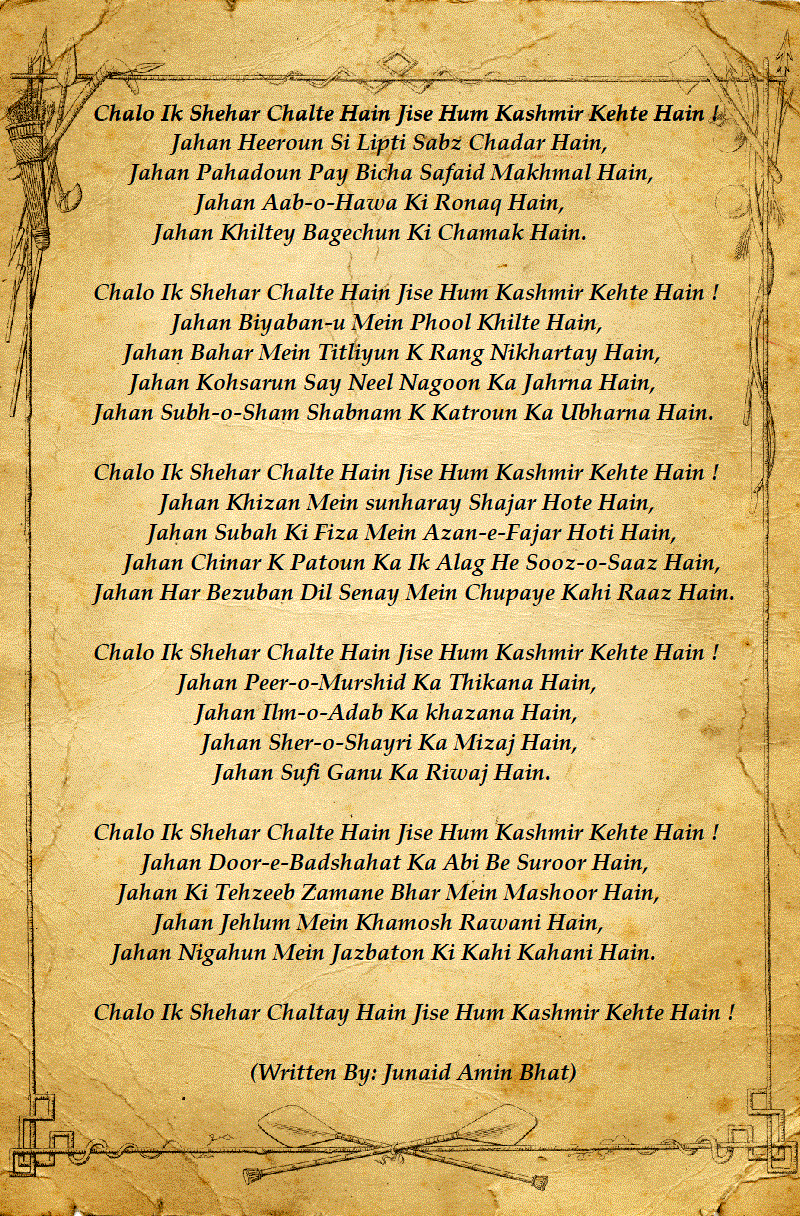 Chalo Ik Shehar Chalte Hain Jise Hum Kashmir Kehte Hain !
Jahan Heeroun Si Lipti Sabz Chadar Hain,
Jahan Pahadoun Pay Bicha Safaid Makhmal Hain,
Jahan Aab-o-Hawa Ki Ronaq Hain,
Jahan Khiltey Bagechun Ki Chamak Hain.
Chalo Ik Shehar Chalte Hain Jise Hum Kashmir Kehte Hain !
Jahan Biyaban-u Mein Phool Khilte Hain,
Jahan Bahar Mein Titliyun K Rang Nikhartay Hain,
Jahan Kohsarun Say Neel Nagoon Ka Jahrna Hain,
Jahan Subh-o-Sham Shabnam K Katroun Ka Ubharna Hain.
Chalo Ik Shehar Chalte Hain Jise Hum Kashmir Kehte Hain !
Jahan Khizan Mein sunharay Shajar Hote Hain,
Jahan Subah Ki Fiza Mein Azan-e-Fajar Hoti Hain,
Jahan Chinar K Patoun Ka Ik Alag He Sooz-o-Saaz Hain,
Jahan Har Bezuban Dil Senay Mein Chupaye Kahi Raaz Hain.
Chalo Ik Shehar Chalte Hain Jise Hum Kashmir Kehte Hain !
Jahan Peer-o-Murshid Ka Thikana Hain,
Jahan Ilm-o-Adab Ka khazana Hain,
Jahan Sher-o-Shayri Ka Mizaj Hain,
Jahan Sufi Ganu Ka Riwaj Hain.
Chalo Ik Shehar Chalte Hain Jise Hum Kashmir Kehte Hain !
Jahan Door-e-Badshahat Ka Abi Be Suroor Hain,
Jahan Ki Tehzeeb Zamane Bhar Mein Mashoor Hain,
Jahan Jehlum Mein Khamosh Rawani Hain,
Jahan Nigahun Mein Jazbaton Ki Kahi Kahani Hain.
Chalo Ik Shehar Chaltay Hain Jise Hum Kashmir Kehte Hain !
(Written By: Junaid Amin Bhat)